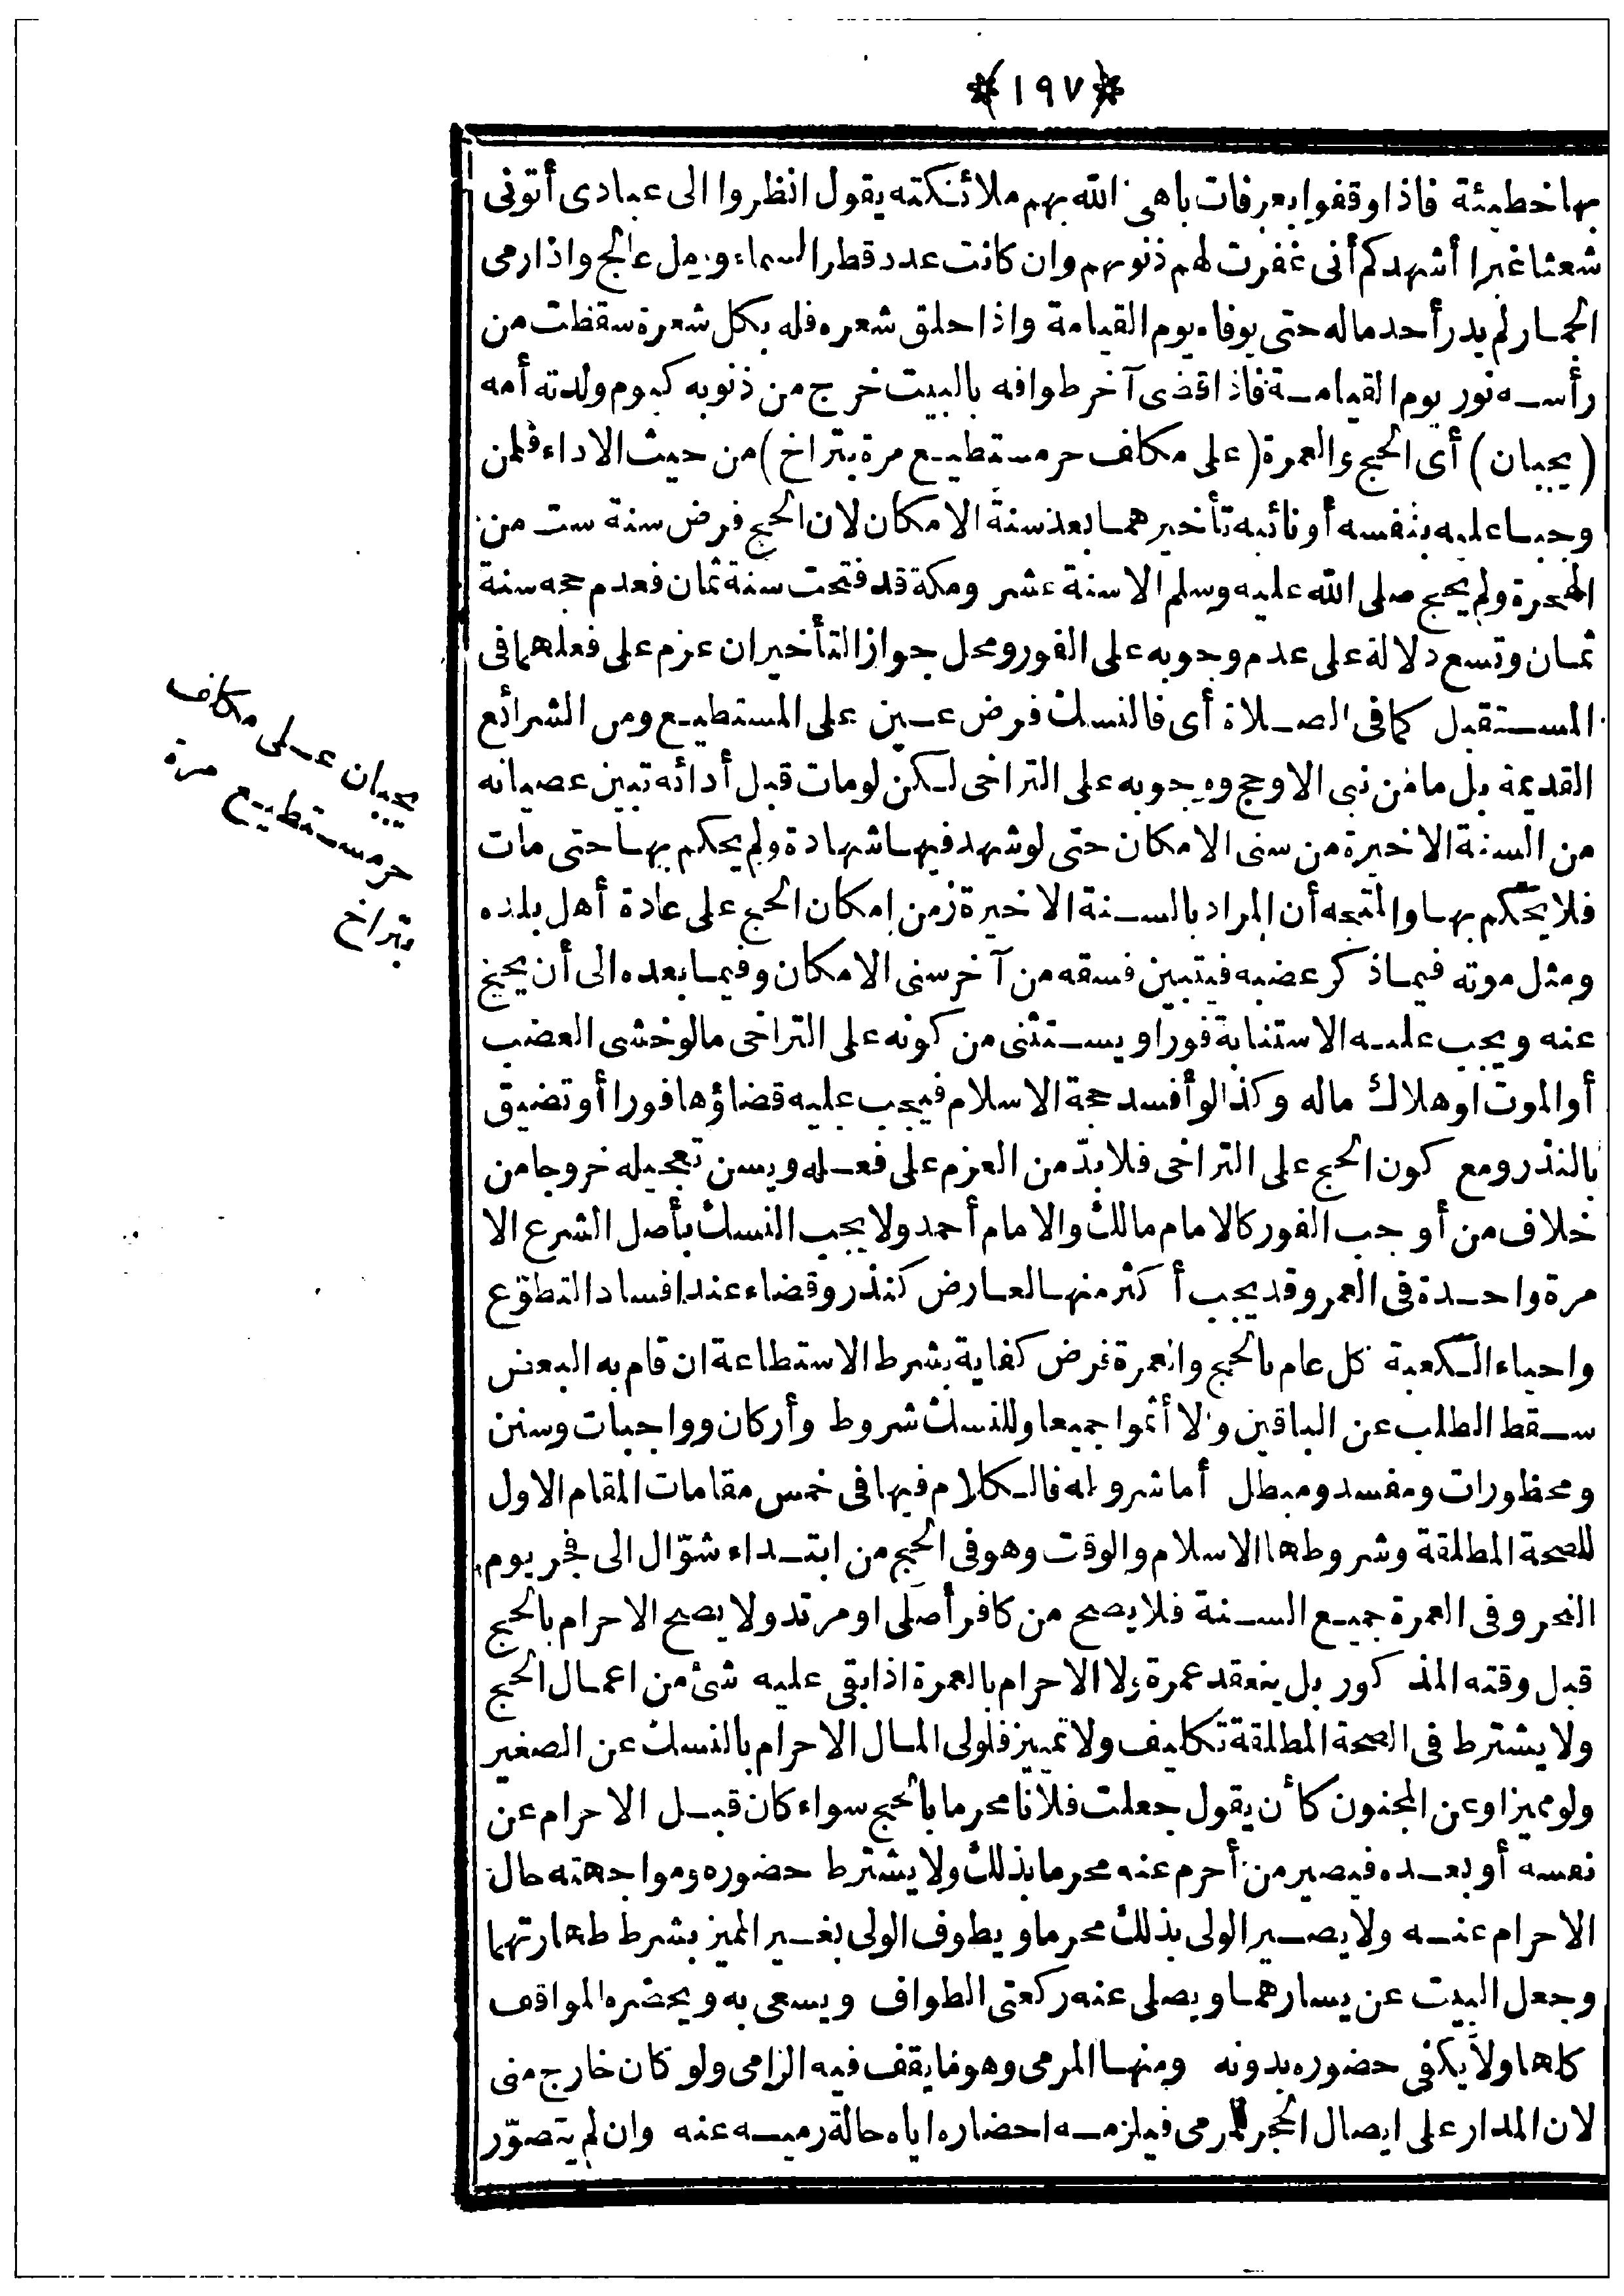 ﴿١٩٧﴾
بها خطيئة فاذا وقفوا بعرفات باهى الله بهم ملائكته يقول انظروا الى عبادى أتونى
شعثا غبرا أشهدكم أنى غفرت لهم ذنوبهم وان كانت عدد قطر السماء ورمل عالج واذا رمى
الجمار لم يدر أحد ماله حتى يوفاه يوم القيامة واذا حلق شعره فله بكل شعرة سقطت من
رأسه نور يوم القيامة فاذا قضى آخر طوافه بالبيت خرج من ذنوبه كيوم ولدته أمه
(يجبان) أى الحج والعمرة (على مكلف حر مستطيع مرة بتراخ) من حيث الاداء فلمن
وجبا عليه بنفسه أو نائبه تأخيرهما بعد سنة الامكان لان الحج فرض سنة ست من
الهجرة ولم يحج صلى الله عليه وسلم الا سنة عشر ومكة قد فتحت سنة ثمان فعدم حجه سنة
ثمان وتسع دلالة على عدم وجوبه على الفور ومحل جواز التأخير ان عزم على فعلهما فى
المستقبل كما فى الصلاة أى فالنسك فرض عين على المستطيع ومن الشرائع
القديمة بل ما من نبى الا وحج ووجوبه على التراخى لكن لو مات قبل أدائه تبين عصيانه
من السنة الاخيرة من سنى الامكان حتى لو شهد فيها شهادة ولم يحكم بها حتى مات
فلا يحكم بها والمتجه أن المراد بالسنة الاخيرة زمن امكان الحج على عادة أهل بلده
ومثل موته فيما ذكر عضبه فيتبين فسقه من آخر سنى الامكان وفيما بعده الى أن يحج
عنه ويجب عليه الاستنابة فورا ويستثنى من كونه على التراخى ما لو خشى العضب
أو الموت او هلاك ماله وكذا لو أفسد حجة الاسلام فيجب عليه قضاؤها فورا أو تضيق
بالنذر ومع كون الحج على التراخى فلا بدّ من العزم على فعله ويسن تعجيله خروجا من
خلاف من أوجب الفور كالامام مالك والامام أحمد ولا يجب النسك بأصل الشرع الا
مرة واحدة فى العمر وقد يجب أكثر منها لعارض كنذر وقضاء عند افساد التطوّع
واحياء الكعبة كل عام بالحج والعمرة فرض كفاية بشرط الاستطاعة ان قام به البعض
سقط الطلب عن الباقين والا أثموا جميعا وللنسك شروط وأركان وواجبات وسنن
ومحظورات ومفسد ومبطل أما شروطه فالكلام فيها فى خمس مقامات المقام الاول
للصحة المطلقة وشروطها الاسلام والوقت وهو فى الحج من ابتداء شوّال الى فجر يوم
النحر وفى العمرة جميع السنة فلا يصح من كافر أصلى او مرتد ولا يصح الاحرام بالحج
قبل وقته المذكور بل ينعقد عمرة ولا الاحرام بالعمرة اذا بقى عليه شئ من اعمال الحج
ولا يشترط فى الصحة المطلقة تكليف ولا تمييز فلولى المال الاحرام بالنسك عن الصغير
ولو مميزا وعن المجنون كأن يقول جعلت فلانا محرما بالحج سواء كان قبل الاحرام عن
نفسه أو بعده فيصير من أحرم عنه محرما بذلك ولا يشترط حضوره ومواجهته حال
الاحرام عنه ولا يصير الولى بذلك محرما ويطوف الولى بغير المميز بشرط طهارتهما
وجعل البيت عن يسارهما ويصلى عنه ركعتى الطواف ويسعى به ويحضره المواقف
كلها ولا يكفى حضوره بدونه ومنها المرمى وهو ما يقف فيه الرامى ولو كان خارج منى
لان المدار على ايصال الحجر للمرمى فيلزمه احضاره اياه حالة رميه عنه وان لم يتصوّر
يجبان على مكلف
حر مستطيع مرة
بتراخ